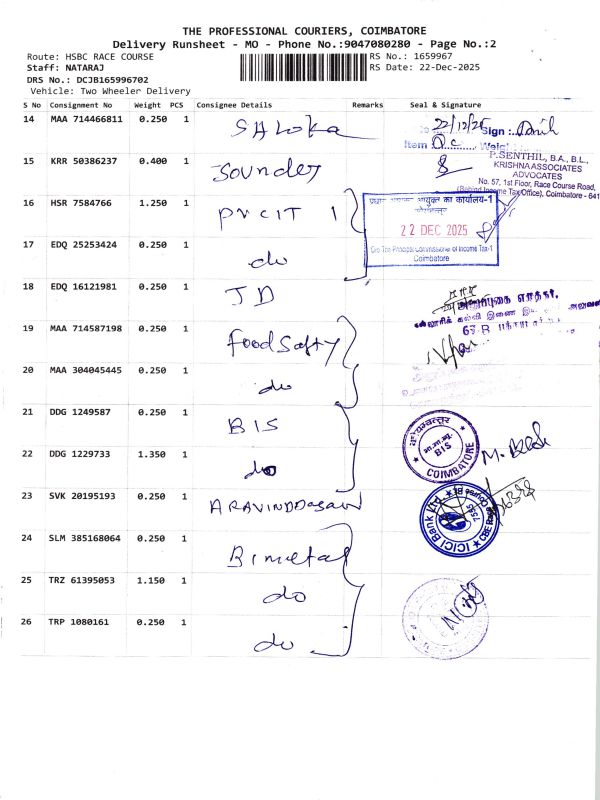 THE PROFESSIONAL COURIERS, COIMBATORE
Delivery Runsheet - MO - Phone No.:9047080280 - Page No.:2
Route: HSBC RACE COURSE
RS No.: 1659967
Staff: NATARAJ
RS Date: 22-Dec-2025
DRS No.: DCJB165996702
Vehicle: Two Wheeler Delivery
S No Consignment No Weight PCS Consignee Details Remarks Seal & Signature
14 MAA 714466811 0.250 1 SHLoka
22/12/25 Sign :
Item
15 KRR 50386237 0.400 1 Sounder
P.SENTHIL, B.A., B.L.,
KRISHNA ASSOCIATES
ADVOCATES
No. 57, 1st Floor, Race Course Road,
(Behind Income Tax Office), Coimbatore - 641
16 HSR 7584766 1.250 1 PrCIT 1
आयुक्त का कार्यालय-1
22 DEC 2025
O/o The Principal Commissioner of Income Tax-1
Coimbatore
17 EDQ 25253424 0.250 1 do
18 EDQ 16121981 0.250 1 JD
19 MAA 714587198 0.250 1 Food Safty
20 MAA 304045445 0.250 1 do
21 DDG 1249587 0.250 1 BIS
BIS
COIMBATORE
22 DDG 1229733 1.350 1 do
23 SVK 20195193 0.250 1 ARAVINDDasawd
ICICI Bank Ltd
24 SLM 385168064 0.250 1 Bimetal
25 TRZ 61395053 1.150 1 do
26 TRP 1080161 0.250 1 do